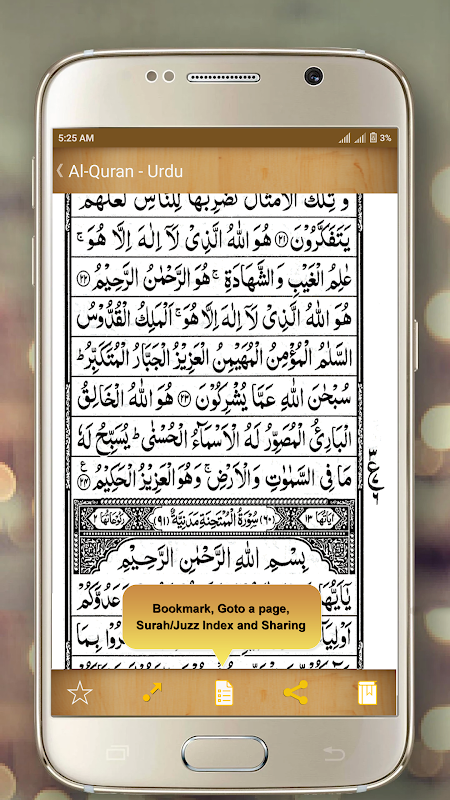 5:25 AM 3%
Al-Quran - Urdu
وَ تِلْكَ الْاَمْثَالُ نَضْرِبُهَا لِلنَّاسِ لَعَلَّهُمْ
يَتَفَكَّرُوْنَ ﴿۲۱﴾ هُوَ اللّٰهُ الَّذِيْ لَاۤ اِلٰهَ اِلَّا هُوَ ۚ
عٰلِمُ الْغَيْبِ وَالشَّهَادَةِ ۚ هُوَ الرَّحْمٰنُ الرَّحِيْمُ ﴿۲۲﴾
هُوَ اللّٰهُ الَّذِيْ لَاۤ اِلٰهَ اِلَّا هُوَ ۚ اَلْمَلِكُ الْقُدُّوْسُ
السَّلٰمُ الْمُؤْمِنُ الْمُهَيْمِنُ الْعَزِيْزُ الْجَبَّارُ الْمُتَكَبِّرُ ؕ
سُبْحٰنَ اللّٰهِ عَمَّا يُشْرِكُوْنَ ﴿۲۳﴾ هُوَ اللّٰهُ الْخَالِقُ
الْبَارِئُ الْمُصَوِّرُ لَهُ الْاَسْمَآءُ الْحُسْنٰى ؕ يُسَبِّحُ لَهٗ
مَا فِي السَّمٰوٰتِ وَالْاَرْضِ ۚ وَهُوَ الْعَزِيْزُ الْحَكِيْمُ ﴿۲۴﴾
اٰيَاتُهَا ۱۳ (۶۰) سُوْرَةُ الْمُمْتَحِنَةِ مَدَنِيَّةٌ (۹۱) رُكُوْعَاتُهَا ۲
بِسْمِ اللّٰهِ الرَّحْمٰنِ الرَّحِيْمِ
يٰۤاَيُّهَا عَدُوِّيْ وَعَدُوَّكُمْ
اَوْلِيَآءَ بِمَا
Bookmark, Goto a page,
Surah/Juzz Index and Sharing